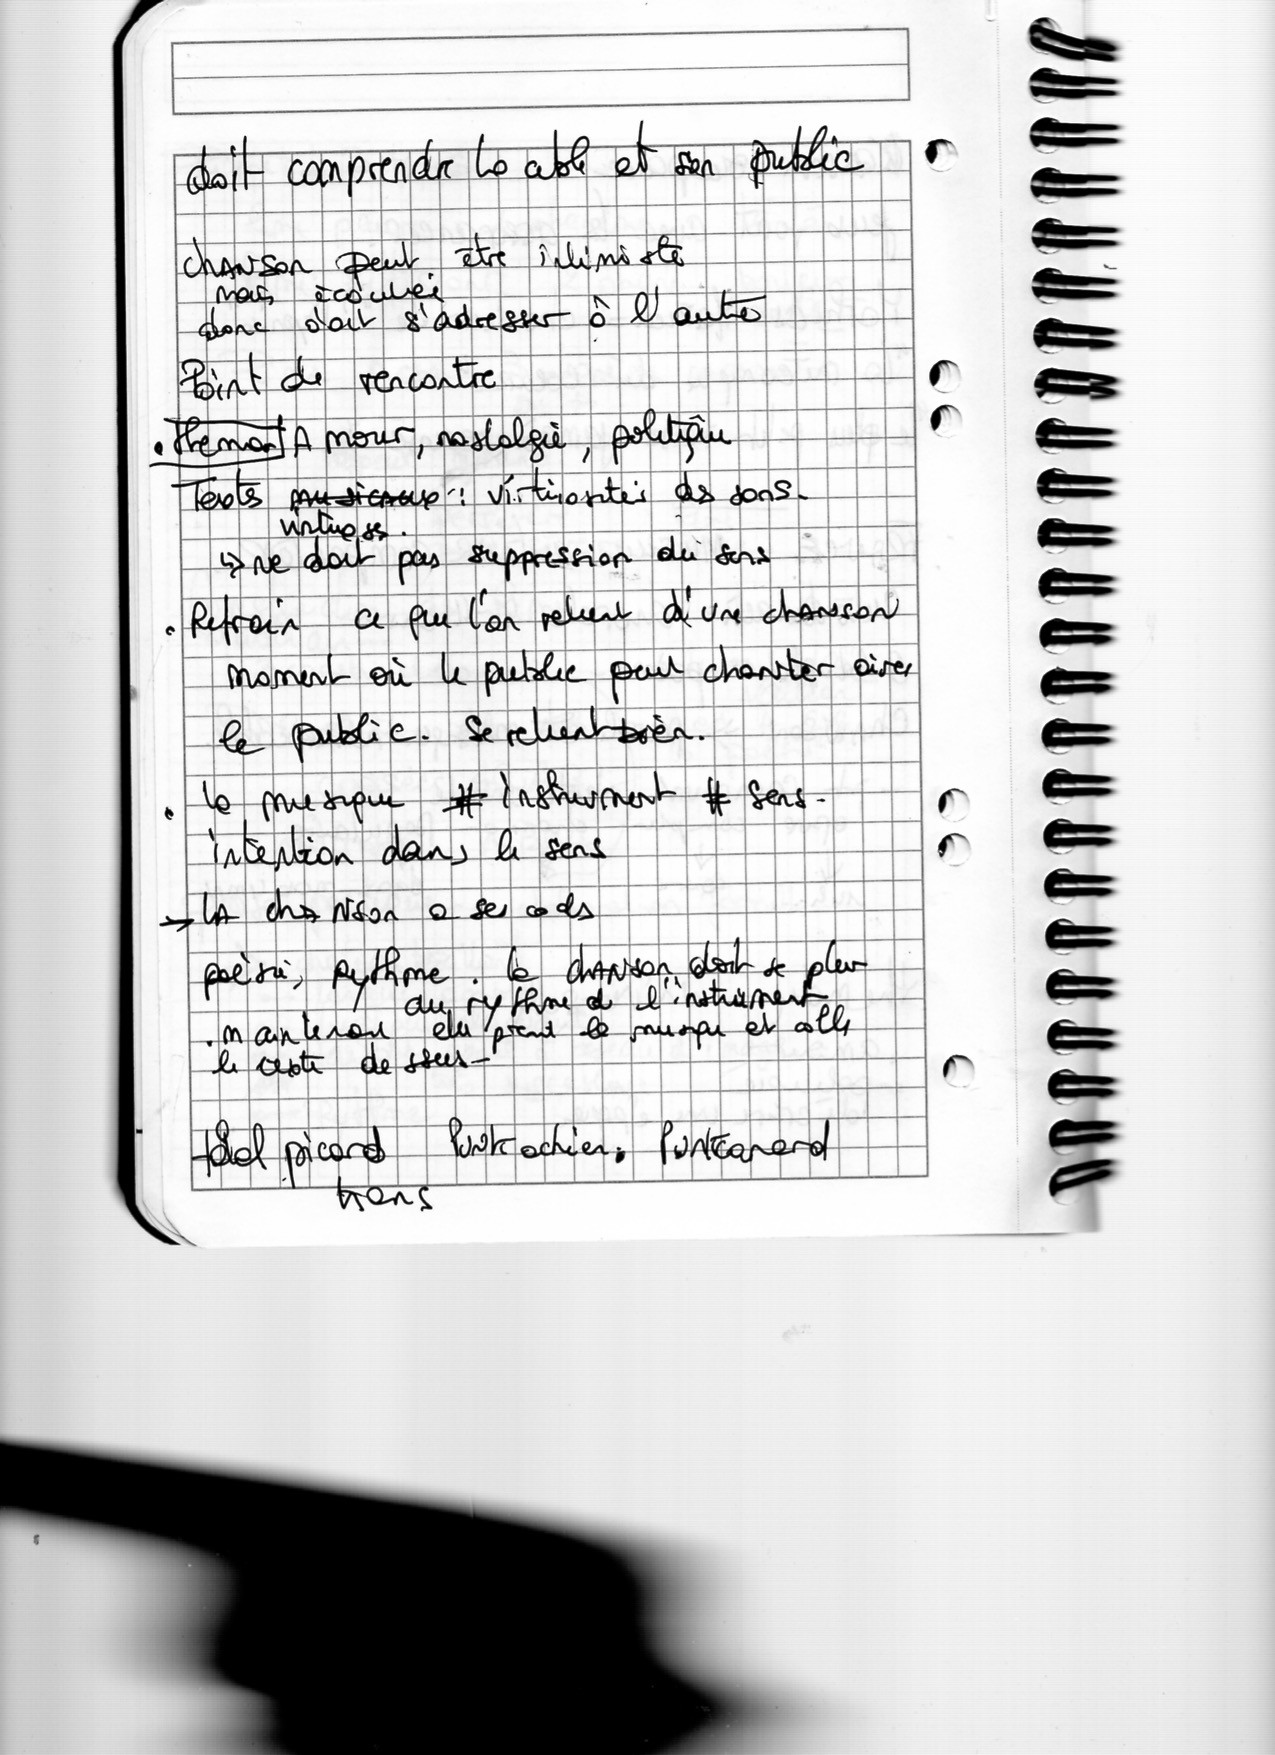 doit comprendre la cible et son public
chanson peut être intimiste
mais écoutée
donc doit s'adresser à l'autre
Point de rencontre
. Amour, nostalgie, politique
Textes musicaux : virtuosités des sons.
virtuoses.
↳ ne doit pas suppression du sens
. Refrain ce que l'on retient d'une chanson
moment où le public peut chanter avec
le public. Se retient bien.
. la musique # instrument # sens.
intention dans le sens
→ LA chanson a ses codes
poésie, rythme. la chanson doit se plier
au rythme de l'instrument
. maintenant elle prend la musique et colle
le texte dessus -
picard
trans